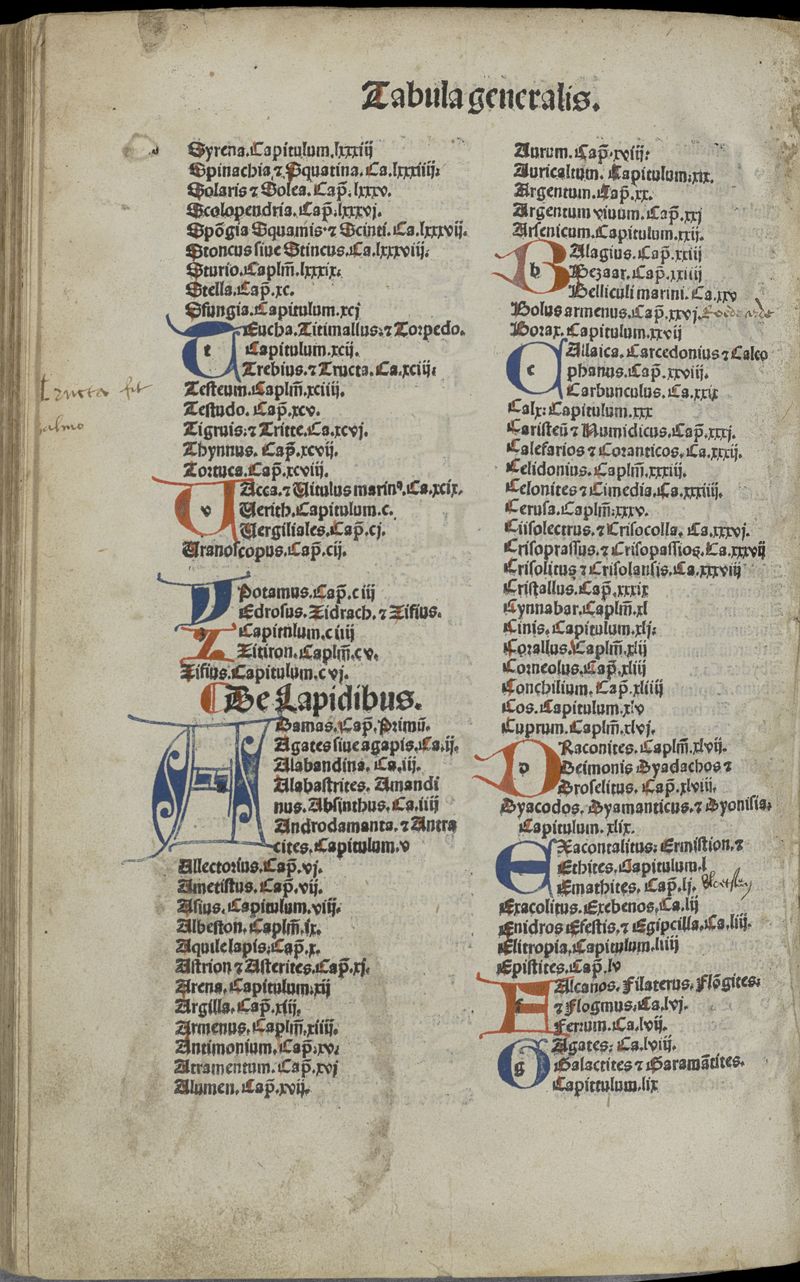 Tabula generalis.
Syrena.Capitulum.lxxxiij
Spinachia.⁊.Squatina.Ca.lxxxiiij.
Solaris ⁊ Solea.Cap̄.lxxxv.
Scolopendria.Cap̄.lxxxvj.
Spōgia Squamis.⁊ Scinti.Ca.lxxxvij.
Stoncus siue Stincus.Ca.lxxxviij.
Sturio.Caplm̄.lxxxix.
Stella.Cap̄.xc.
Sfungia.Capitulum.xcj
Teucha.Titimallus.⁊ Torpedo.
Capitulum.xcij.
Trebius.⁊ Tructa.Ca.xciij.
Testeum.Caplm̄.xciiij.
Testudo.Cap̄.xcv.
Tigruis.⁊ Tritte.Ca.xcvj.
Thynnus.Cap̄.xcvij.
Tortuca.Cap̄.xcviij.
Vacca.⁊ Vitulus marinꝰ.Ca.xcix.
Verith.Capitulum.c.
Vergiliales.Cap̄.cj.
Vranoscopus.Cap̄.cij.
Ypotamus.Cap̄.ciij
Zedrosus.Zidrach.⁊ Zifius.
Capitulum.ciiij
Zitiron.Caplm̄.cv.
Zifius.Capitulum.cvj.
De Lapidibus.
Adamas.Cap̄.Primū.
Agates siue agapis.Ca.ij.
Alabandina.Ca.iij.
Alabastrites.Amandi
nus.Absinthus.Ca.iiij
Androdamanta.⁊ Antra
cites.Capitulum.v
Allectorius.Cap̄.vj.
Ametistus.Cap̄.vij.
Asius.Capitulum.viij.
Albeston.Caplm̄.ix.
Aquile lapis.Cap̄.x.
Astrion ⁊ Asterites.Cap̄.xj.
Arena.Capitulum.xij
Argilla.Cap̄.xiij.
Armenus.Caplm̄.xiiij.
Antimonium.Cap̄.xv.
Atramentum.Cap̄.xvj
Alumen.Cap̄.xvij.
Tructa fit
salmo
Aurum.Cap̄.xviij.
Auricalcum.Capitulum.xix.
Argentum.Cap̄.xx.
Argentum viuum.Cap̄.xxj
Arsenicum.Capitulum.xxij.
b Balagius.Cap̄.xxiij
Bezaar.Cap̄.xxiiij
Belliculi marini.Ca.xxv
Bolus armenus.Cap̄.xxvj.
Borax.Capitulum.xxvij
c Callaica.Carcedonius ⁊ Calco
phanus.Cap̄.xxviij.
Carbunculus.Ca.xxix
Calx.Capitulum.xxx
Caristeū ⁊ Numidicus.Cap̄.xxxj.
Calefarios ⁊ Coranticos.Ca.xxxij.
Celidonius.Caplm̄.xxxiij.
Celonites ⁊ Cimedia.Ca.xxxiiij.
Cerusa.Caplm̄.xxxv.
Ciisolectrus.⁊ Crisocolla.Ca.xxxvj.
Crisoprassus.⁊ Crisopassios.Ca.xxxvij
Crisolitus ⁊ Crisolansis.Ca.xxxviij
Cristallus.Cap̄.xxxix
Cynnabar.Caplm̄.xl
Cinis.Capitulum.xlj.
Corallus.Caplm̄.xlij
Corneolus.Cap̄.xliij
Conchilium.Cap̄.xliiij
Cos.Capitulum.xlv
Cuprum.Caplm̄.xlvj.
Draconites.Caplm̄.xlvij.
Deimonis Dyadochos ⁊
Droselitus.Cap̄.xlviij.
Dyacodos.Dyamanticus.⁊ Dyonisia.
Capitulum.xlix.
Exacontalitus.Ermistion.⁊
Ethites.Capitulum.l
Emathites.Cap̄.lj.
Exacolitus.Exebenos.Ca.lij
Enidros Efestis.⁊ Egipcilla.Ca.liij.
Elitropia.Capitulum.liiij
Epistites.Cap̄.lv
Falcanos.Filaterus.Flōgites.
⁊ Flogmus.Ca.lvj.
Ferrum.Ca.lvij.
g Gagates.Ca.lviij.
Galactites ⁊ Garamātites.
Capitulum.lix